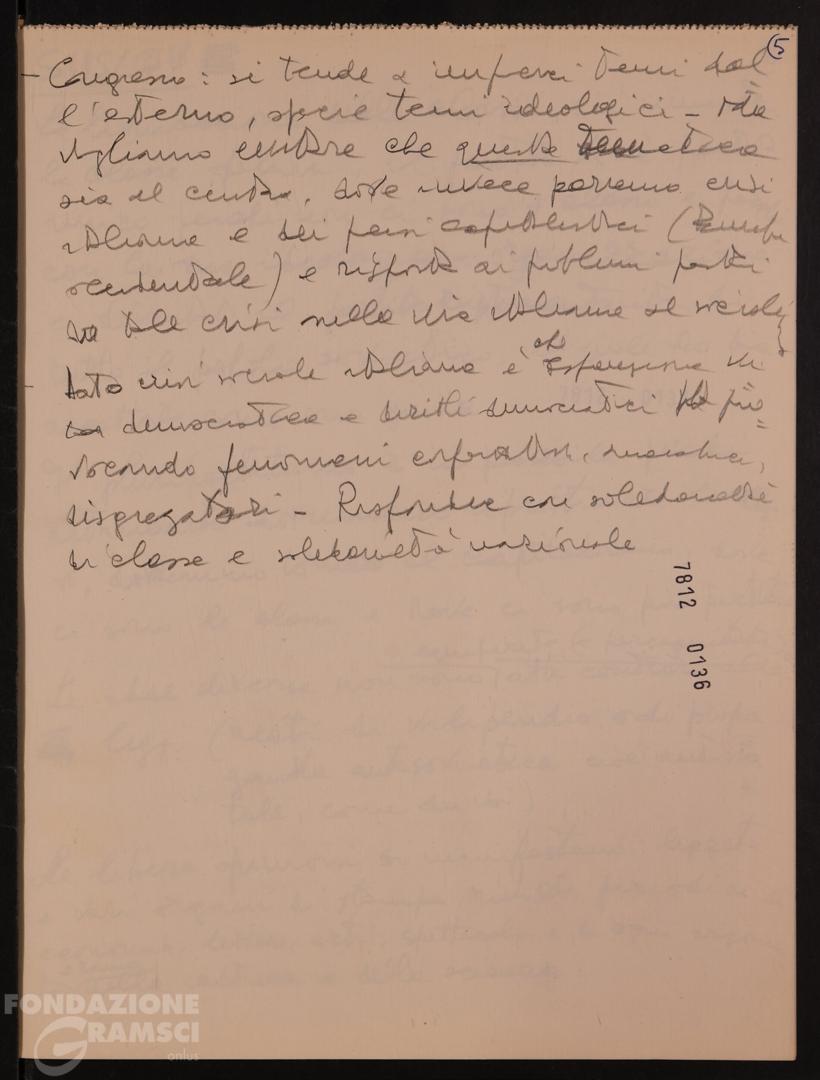 5
– Congresso: si tende a imporci temi dal
l'esterno, specie temi ideologici –
vogliamo evitare che questa tematica
sia al centro, dove invece porremo crisi
italiana e dei paesi capitalistici (Europa
occidentale) e risposta ai problemi posti
da tale crisi nella via italiana al social
– Dato crisi sociale italiana è che espansione vi
democratica e diritti democratici sta pro=
vocando fenomeni corporativi,
disgregatori – Rispondere con solidarietà
di classe e solidarietà nazionale
7812 0136
FONDAZIONE
GRAMSCI
onlus